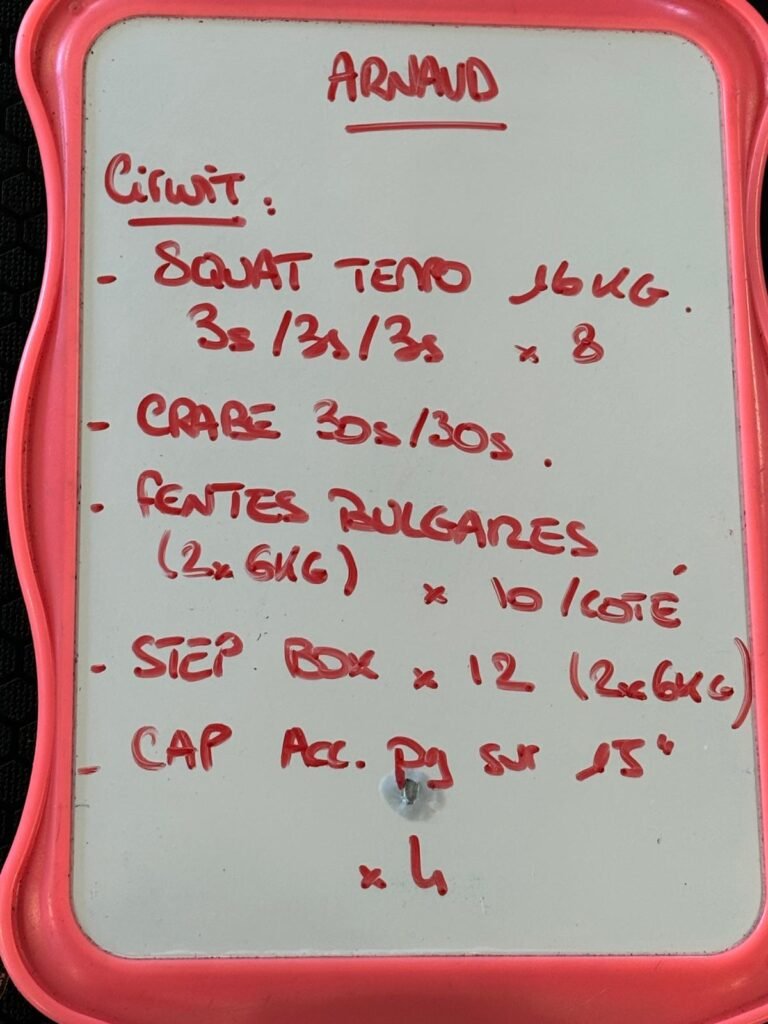 ARNAUD
Circuit :
- SQUAT TEMPO 16KG.
3s/3s/3s x 8
- CRABE 30s/30s.
- FENTES BULGARES
(2x6KG) x 10/COTÉ
- STEP BOX x 12 (2x6KG)
- CAP Acc. pg sur 15"
x 4